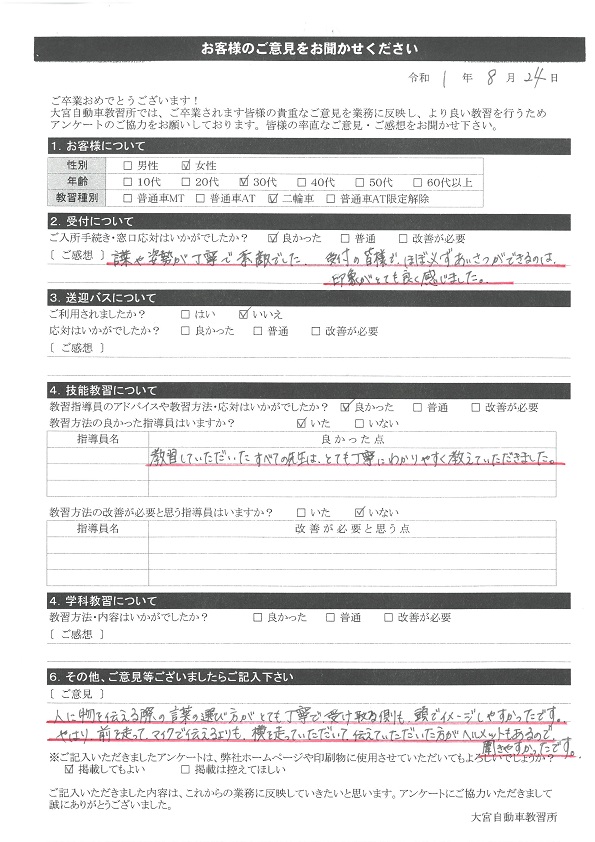 お客様のご意見をお聞かせください
令和 1 年 8 月 24 日
ご卒業おめでとうございます！
大宮自動車教習所では、ご卒業されます皆様の貴重なご意見を業務に反映し、より良い教習を行うため
アンケートのご協力をお願いしております。皆様の率直なご意見・ご感想をお聞かせ下さい。
1. お客様について
性別 □ 男性 ☑ 女性
年齢 □ 10代 □ 20代 ☑ 30代 □ 40代 □ 50代 □ 60代以上
教習種別 □ 普通車MT □ 普通車AT ☑ 二輪車 □ 普通車AT限定解除
2. 受付について
ご入所手続き・窓口応対はいかがでしたか？ ☑ 良かった □ 普通 □ 改善が必要
〔 ご感想 〕 言葉や姿勢が丁寧で素敵でした。 受付の皆様が、ほぼ必ずあいさつができるのは、
印象がとても良く感じました。
3. 送迎バスについて
ご利用されましたか？ □ はい ☑ いいえ
応対はいかがでしたか？ □ 良かった □ 普通 □ 改善が必要
〔 ご感想 〕
4. 技能教習について
教習指導員のアドバイスや教習方法・応対はいかがでしたか？ ☑ 良かった □ 普通 □ 改善が必要
教習方法の良かった指導員はいますか？ ☑ いた □ いない
指導員名 良かった点
教習していただいたすべての先生は、とても丁寧にわかりやすく教えていただきました。
教習方法の改善が必要と思う指導員はいますか？ □ いた ☑ いない
指導員名 改善が必要と思う点
4. 学科教習について
教習方法・内容はいかがでしたか？ □ 良かった □ 普通 □ 改善が必要
〔 ご感想 〕
6. その他、ご意見等ございましたらご記入下さい
〔 ご意見 〕
人に物を伝える際の言葉の選び方がとても丁寧で、受け取る側も、頭でイメージしやすかったです。
やはり、前を走って、マイクで伝えるよりも、横を走っていただいて伝えていただいた方がヘルメットもあるので、
聞きやすかったです。
※ご記入いただきましたアンケートは、弊社ホームページや印刷物に使用させていただいてもよろしいでしょうか？
☑ 掲載してもよい □ 掲載は控えてほしい
ご記入いただきました内容は、これからの業務に反映していきたいと思います。アンケートにご協力いただきまして
誠にありがとうございました。
大宮自動車教習所